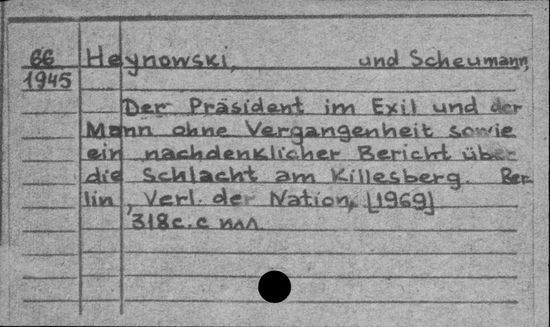 66 Heynowski, und Scheumann,
1945
Der Präsident im Exil und der
Mann ohne Vergangenheit sowie
ein nachdenklicher Bericht über
die Schlacht am Killesberg. Ber
lin, Verl. der Nation, [1969]
318c. с илл.